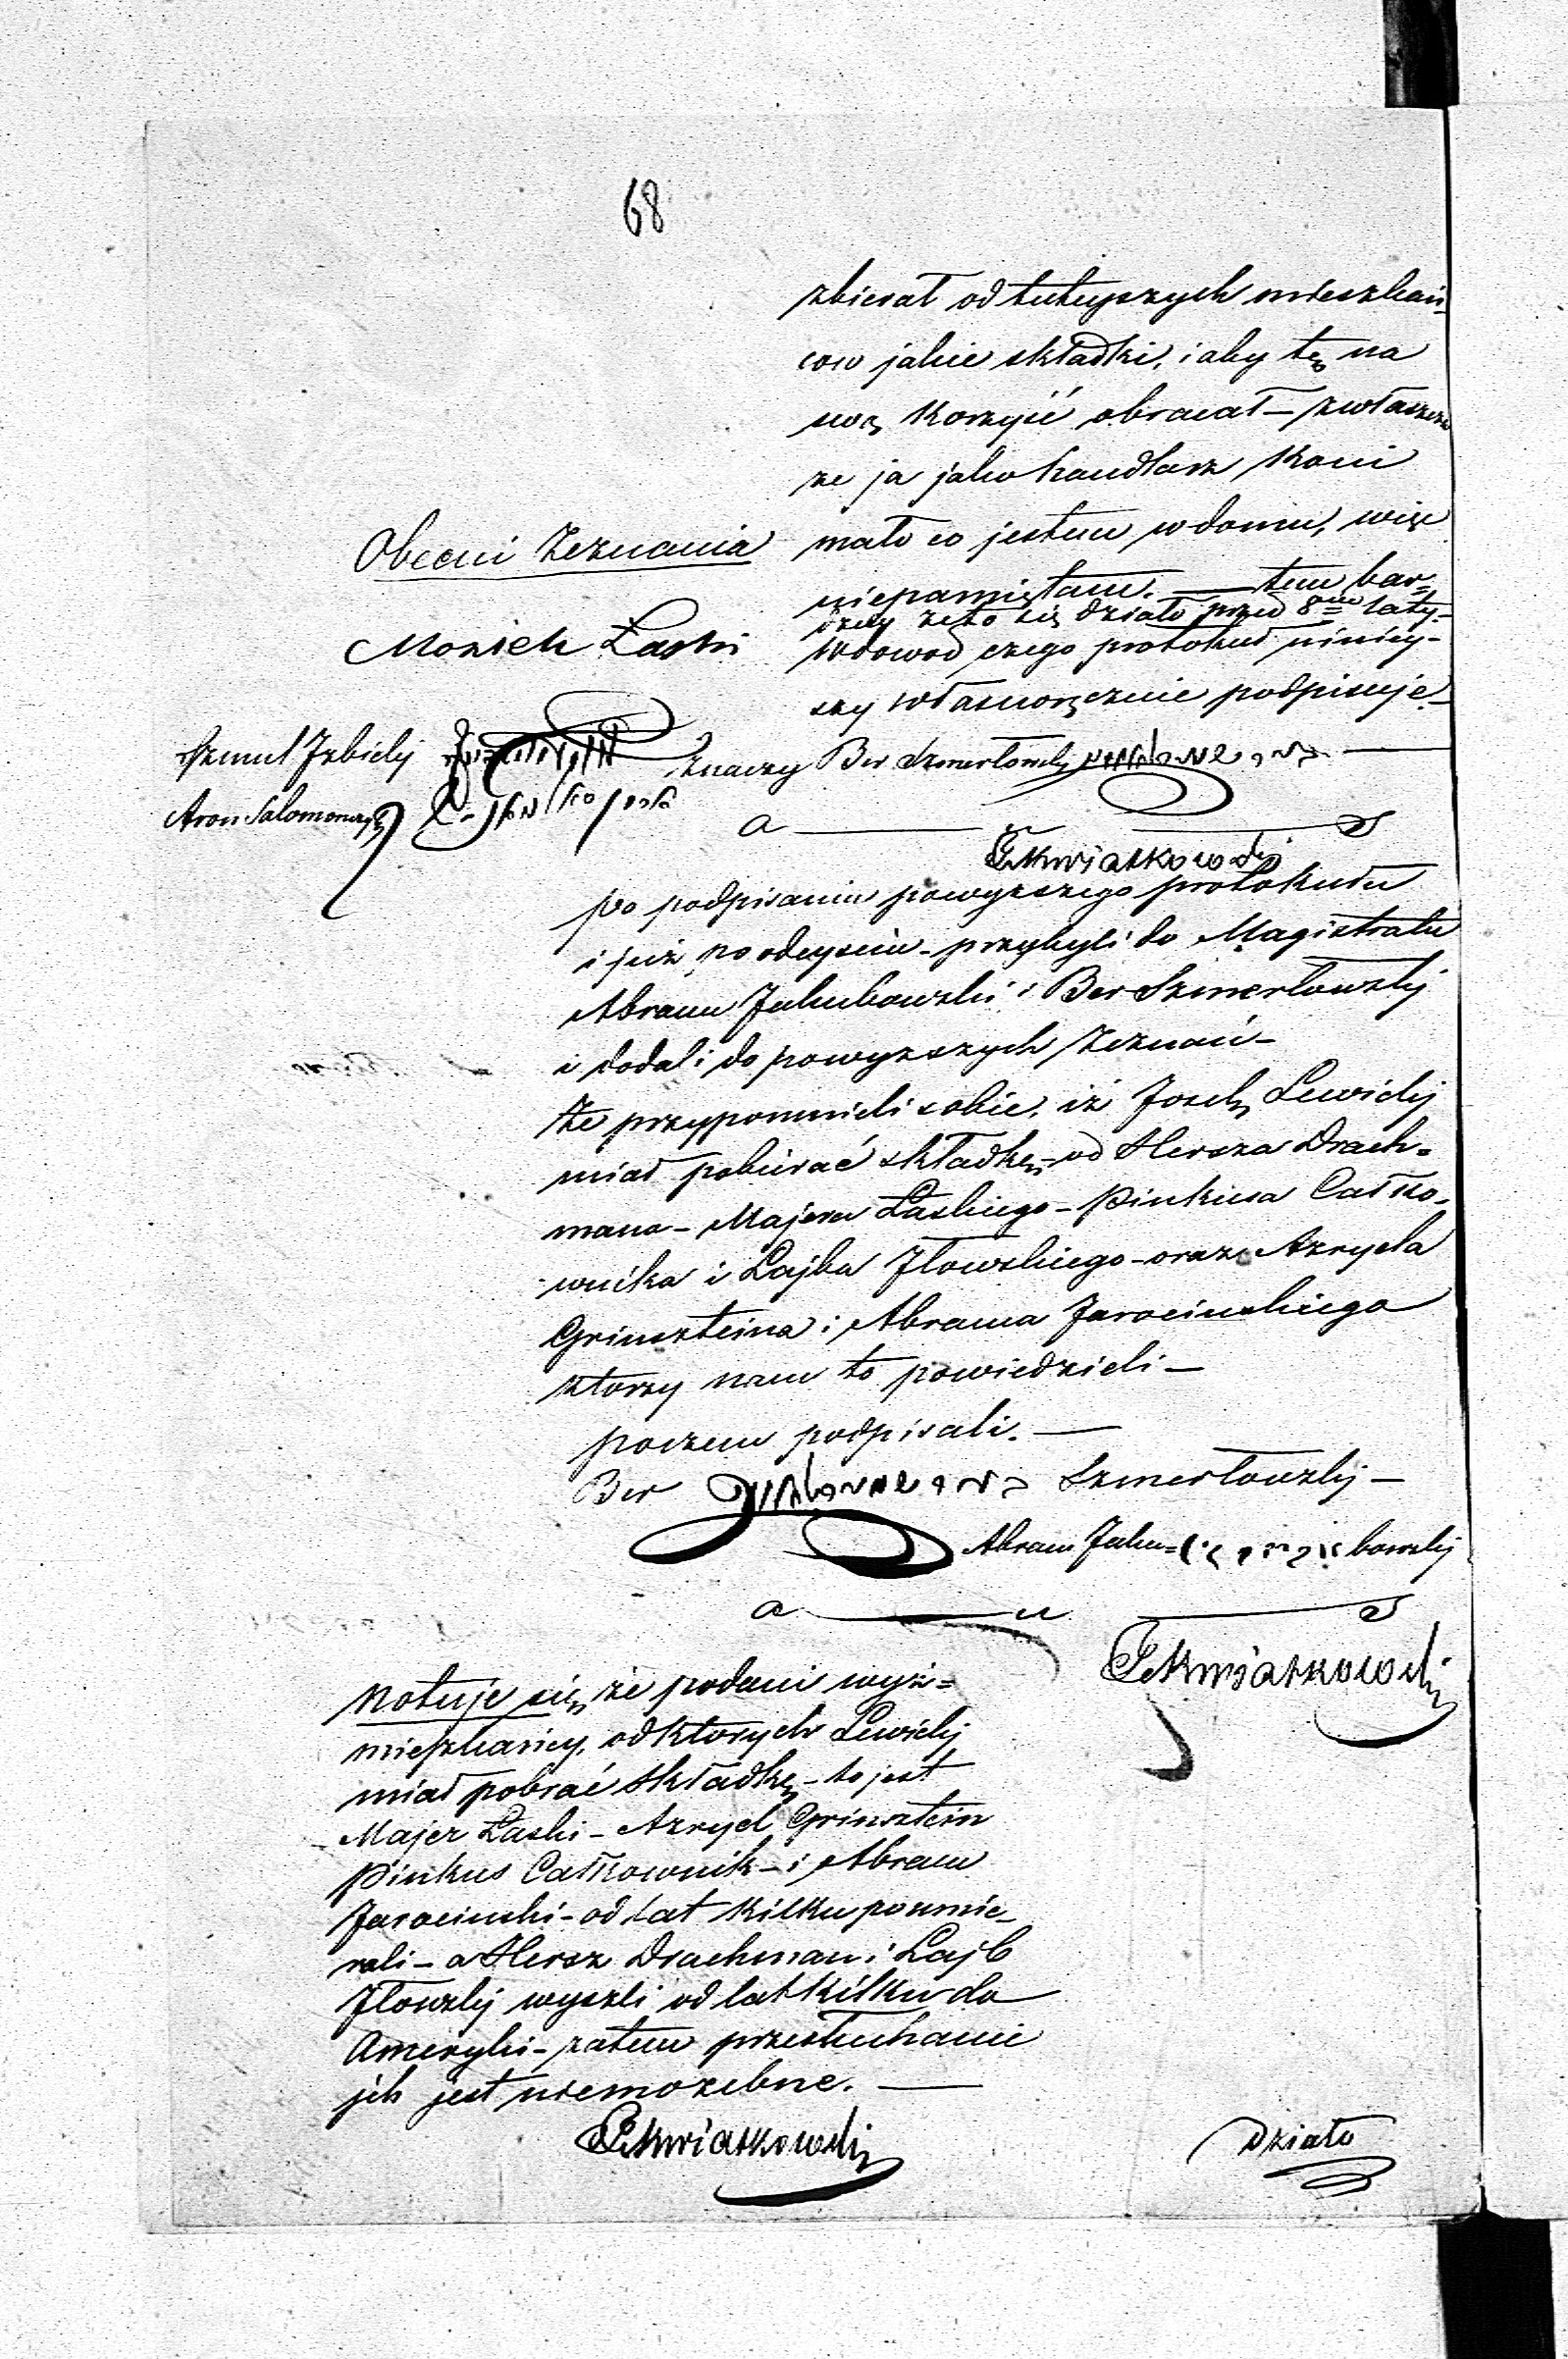 68
zbierał od tutejszych mieszkań-
cow jakie składki, i aby tę na
swą korzyść obracał – zwłaszcza
ze ja jako handlarz koni
mało co jestem w domu, więc
niepamiętam. — tem bar=
dziej że to się działo przed 8mu laty –
Wdowod czego protokuł niniey-
szy własnoręcznie podpisuję –
znaczy Ber Szmerlowski
Obecni Zeznania
Moziek Łaski
Szmul Jzbicki
Aron Salomonczyk
a — S
FKwiatkowski
po podpisaniu powyzszego protokułu
i już po odeysciu – przybyli do Magistratu
Abram Jakubowski i Ber Szmerlowski
i dodali do powyzszych Zeznań –
Że przypomnieli sobie, iż Josek Lewicki
miał pobierać składkę – od Hersza Drach=
mana – Majera Łaskiego – Pinkusa Całko-
wnika i Lajba Jłowskiego – oraz Azryela
Grinszteina i Abrama Jarocinskiego
ktorzy nam to powiedzieli –
poczem podpisali. —
Ber Szmerlowski –
Abram Jaku= bowski
a — u — S
Kwiatkowski
Notuje się, że podani wyż=
mieszkańcy, od ktorych Lewicki
miał pobrać składkę – to jest
Majer Łaski – Azryel Grinsztein
Pinkus Całkownik – i Abram
Jarocinski – od lat kilku poumie_
rali – a Hersz Drachman i Lajb
Jłowski wyszli od lat kilku do
Ameryki – zatem przesłuchanie
jch jest niemozebne. —
Kwiatkowski
Działo